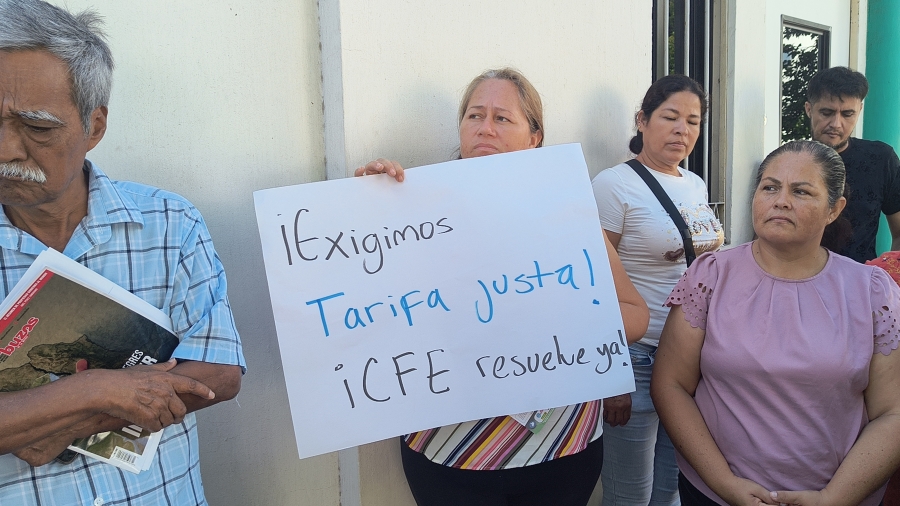 ¡Exigimos
Tarifa justa!
¡CFE resuelve ya!
buzos